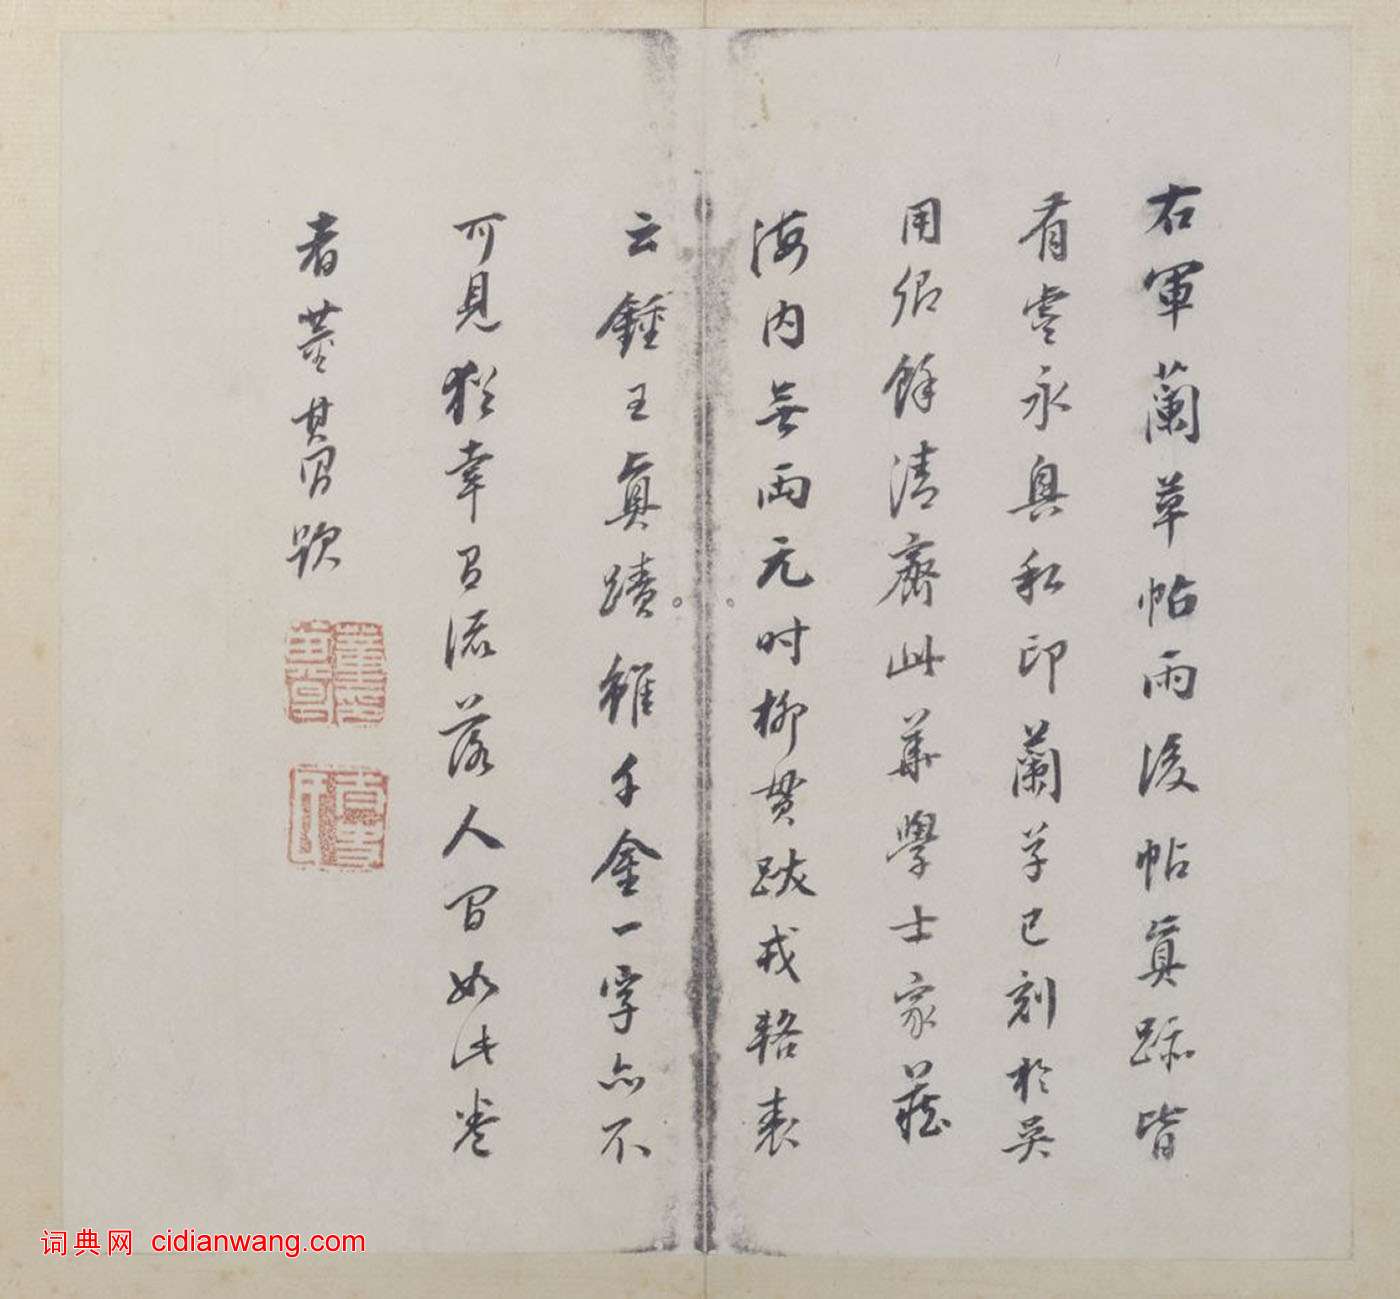 右軍蘭草帖雨後帖真跡皆
有虞永興私印蘭草已刻於吳
用卿餘清齋此華學士家藏
海内無兩元時柳貫跋戎輅表
云鍾王真蹟雖千金一字亦不
可見猶幸有流落人間如此卷
者董其昌題
詞典网 cidianwang.com